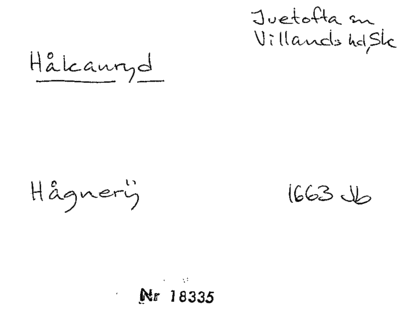 Ivetofta sn
Villands hd, Sk
Håkanryd
Hågnerÿ 1663 Jb
Nr 18335